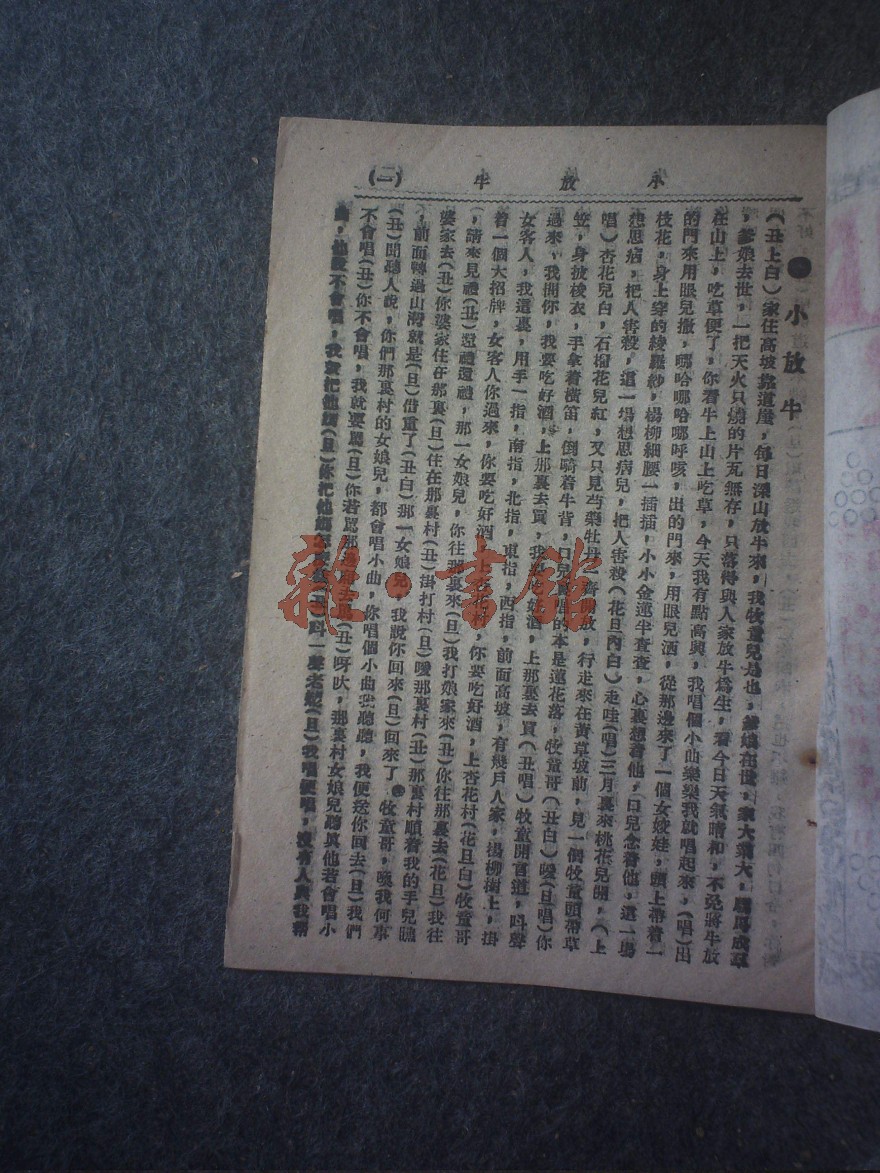 小放牛 (二)
小放牛
(丑上白)家住高坡靠道崖,每日深山放牛來,我牧童兒是也,爹娘在世,家大業大,騾馬成羣
,爹娘去世,一把天火只燒的片瓦無存,只落得與人家放牛爲生,看今日天氣晴和,不免將牛放
在山上,吃草便了,你看牛上山上吃草,今天我有點高興,我唱個小曲樂樂我就唱起來,(唱)出
的門來用眼兒撒,哪哈哪哈哪呼咳,出的門來,用眼兒洒,從那邊來了一個女姣娃,頭上帶着一
枝花,身上穿的綾羅紗,楊柳細腰一插插,小小金蓮半查查,心裏想着他,口兒念着他,這一塲
想思病,把人害殺,這一塲想思病兒,把人害殺(花旦內白)走哇(唱)三月裏來桃花兒開,(上
唱)杏花兒白,石榴花兒紅,又只見芍藥牡丹 齊開放,行走來在黃草坡前,見一個牧童頭帶草
笠,身披梭衣,手拿着橫笛,倒騎着牛背,口兒裏唱的本是蓮花落,牧童哥(丑白)噯(旦唱)你
過來,我問你,我要吃好酒,上那裏去買,我要吃好酒,上那裏去買(丑唱)牧童開言道,叫聲
女客人,我這裏,用手一指,南指,北指,東指,西指,前面高坡,有幾戶人家,楊柳樹上,掛
着一個大招牌,女客人你過來,你要吃好酒,上杏花村,你要吃好酒,上杏花村(花旦白)牧童哥
,請來見禮(丑)還禮還禮,那一女娘兒,你往那裏來(旦)我打娘家來(丑)你往那裏去(花旦)我往
婆家去(丑)你婆家住在那裏(旦)住在那裏村(丑)掛打村(旦)噯那裏村(丑)那裏村順着我的手兒瞧
,前面轉過山灣就是(旦)借重了(丑白)那一女娘兒,我說你回來(旦)回來了,牧童哥,喚我何事
(丑)聞聽人說,你們那裏村的女娘兒,都會唱小曲,你唱個小曲我聽聽,我便送你回去(旦)我們
不會唱(丑)你不會唱,我就要罵(旦)你若罵那邊 去罵(丑)呀呔,那裏村女娘兒聽真他若會唱小
曲,他說不會唱,我就把他 (旦)你把他 怎 (丑)叫一聲老 (旦)我唱便唱,沒有人與我幫
雜·書館